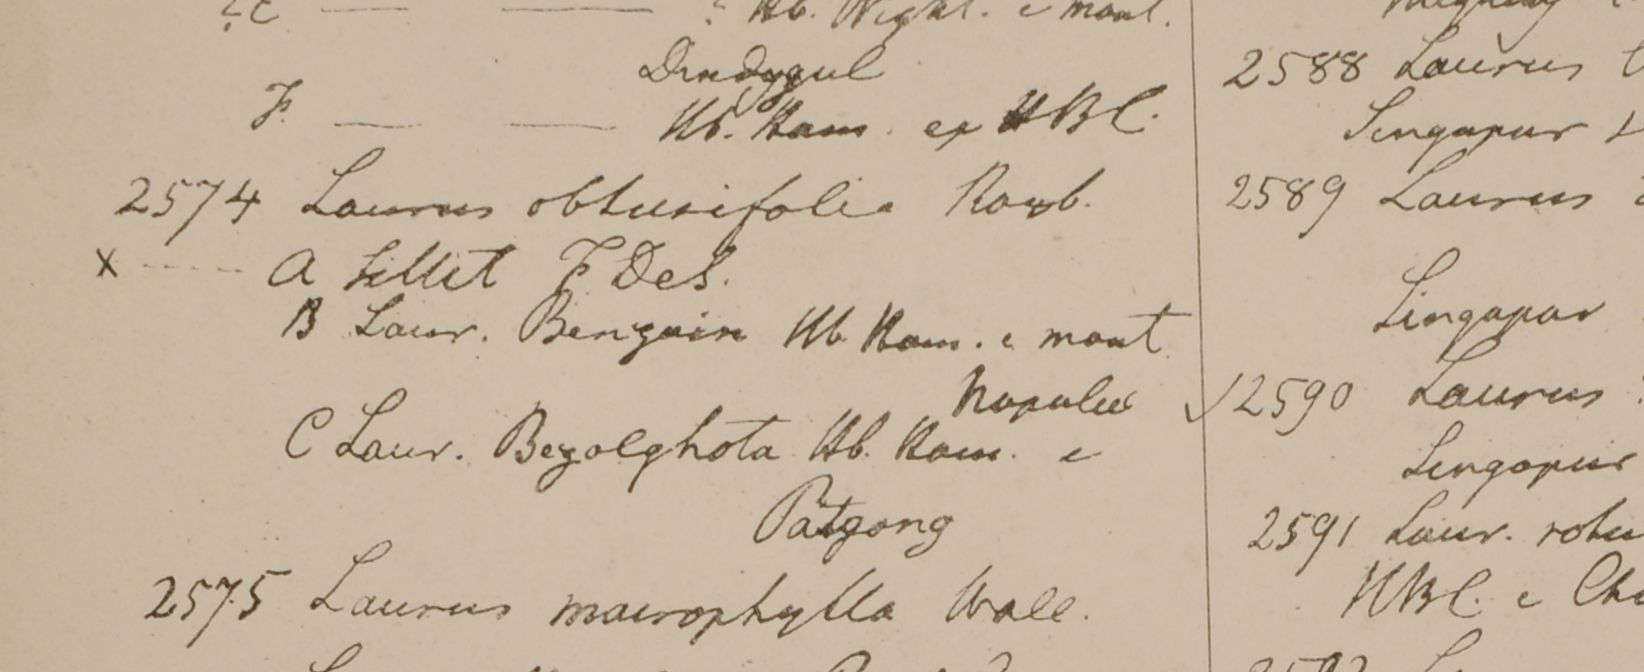 ? E — — ? Hb. Wight. e mont.
Dindygul
F. — — Hb. Ham. ex HBC.
2574 Laurus obtusifolia Roxb.
x ---- A Sillet F De S.
B Laur. Benzoin Hb Ham. e mont
Nopulee
C Laur. Bezolghota Hb. Ham. e
Patgong
2575 Laurus macrophylla Wall.
2588 Laurus
Singapur
2589 Laurus
Singapur
√ 2590 Laurus
Singapur
2591 Laur. rotu
HBC. e Cha